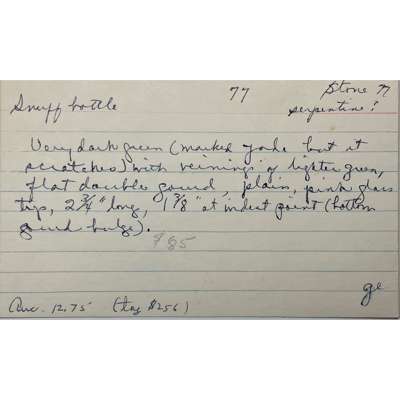 77
Stone
Snuff bottle
serpentine?
Very dark green (marked jade but it
scratches) with veinings of lighter green,
flat double gourd, plain, pink glass
top, 2 3/4" long, 1 7/8" at widest point (bottom
gourd bulge).
$85
ge
Auc. 12.75 (tag $256)